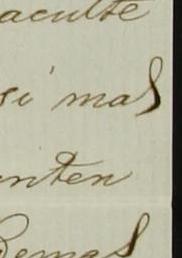 aculte
si mas
nten
Demas